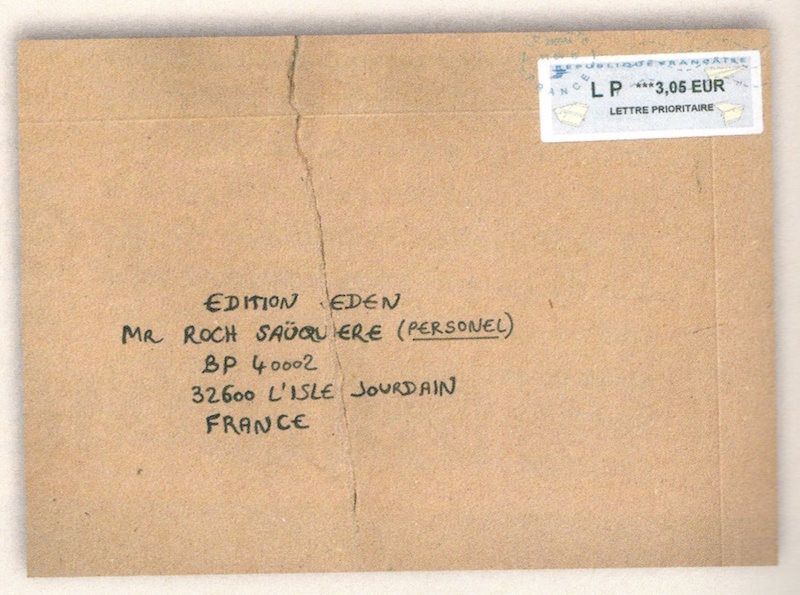 RÉPUBLIQUE FRANÇAISE
LP ***3,05 EUR
LETTRE PRIORITAIRE
FRANCE
EDITION EDEN
MR ROCH SAÜQUERE (PERSONEL)
BP 40002
32600 L'ISLE JOURDAIN
FRANCE